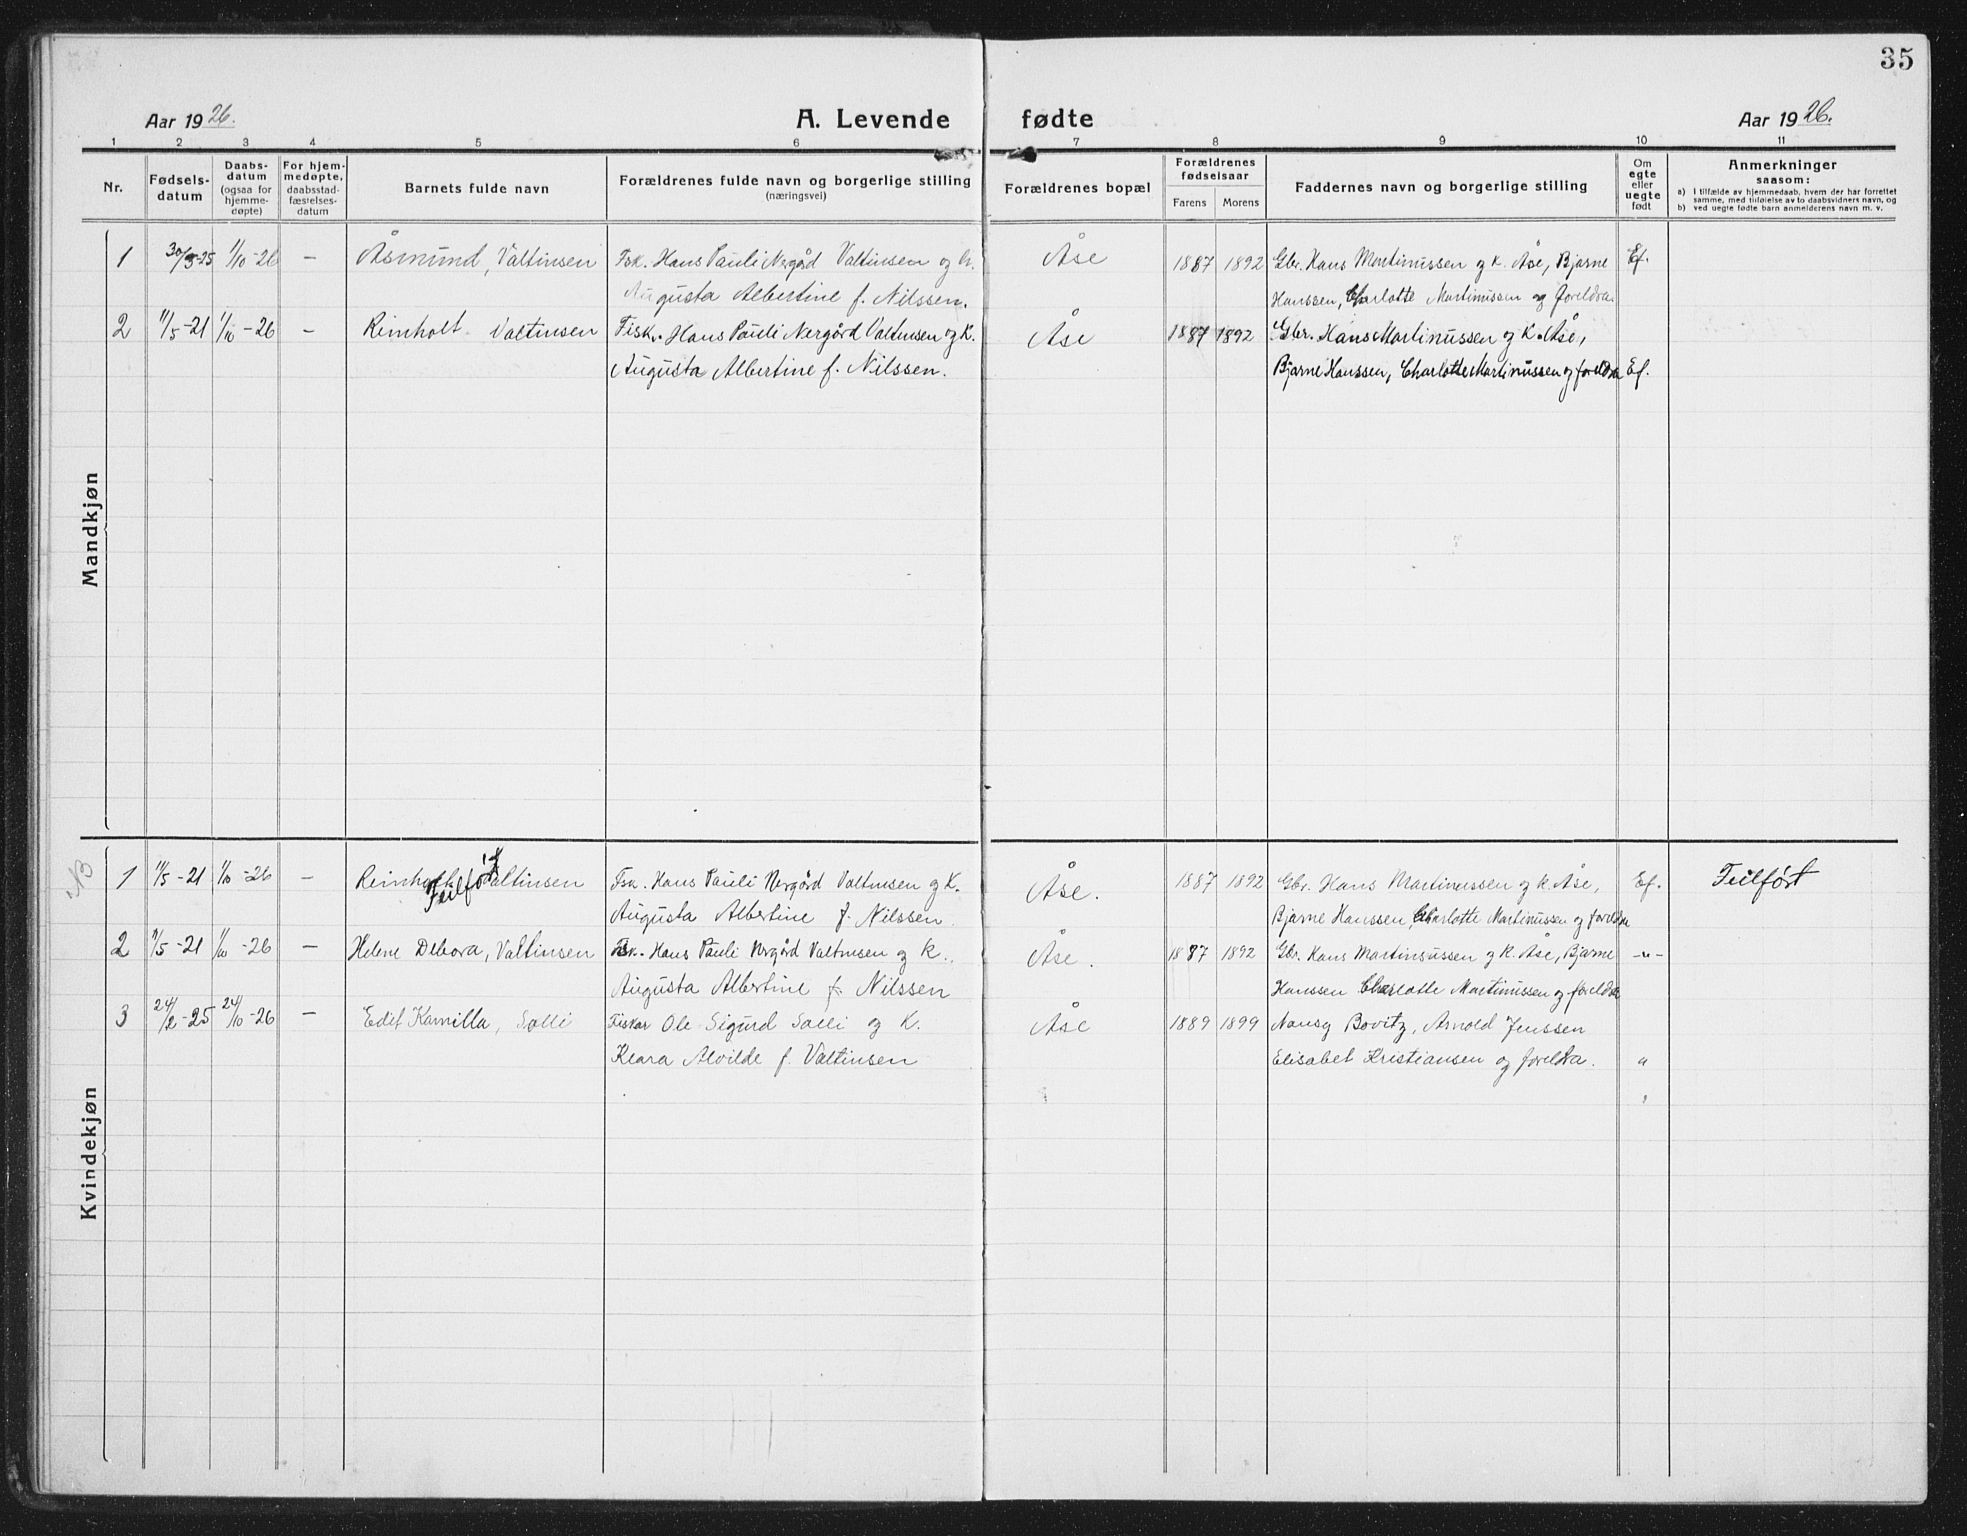 35
Aar 1926.
A. Levende fødte
Aar 1926.
1 2 3 4 5 6 7 8 9 10 11
Nr.
Fødsels-
datum
Daabs-
datum
(ogsaa for
hjemme-
døpte)
For hjem-
medøpte,
daabsstad-
fæstelses-
datum
Barnets fulde navn
Forældrenes fulde navn og borgerlige stilling
(næringsvei)
Forældrenes bopæl
Forældrenes
fødselsaar
Farens Morens
Faddernes navn og borgerlige stilling
Om
egte
eller
uegte
født
Anmerkninger
saasom:
a) I tilfælde av hjemmedaab, hvem der har forrettet
samme, med tilføielse av to daabsvidners navn, og
b) ved uegte fødte barn anmelderens navn m. v.
Mandkjøn
1 30/3-25 1/10-26 – Åsmund, Valtinsen Fsk. Hans Pauli Nergård Valtinsen og k. Åse 1887 1892 Gbr. Hans Martinussen og k. Åse, Bjarne Ef.
Augusta Albertine f. Nilssen. Hanssen, Charlotte Martinussen og foreldra
2 11/5-21 1/10-26 – Reinholt Valtinsen Fisk. Hans Pauli Nergård Valtinsen og k. Åse 1887 1892 Gbr. Hans Martinussen og k. Åse,
Augusta Albertine f. Nilssen. Bjarne Hanssen, Charlotte Martinussen og foreldra Ef.
Kvindekjøn
NB
1 11/5-21 1/10-26 – Reinholt Valtinsen Fsk. Hans Pauli Nergård Valtinsen og k. Åse. 1887 1892 Gbr. Hans Martinussen og k. Åse, Ef. Feilført
Feilført
Augusta Albertine f. Nilssen. Bjarne Hanssen, Charlotte Martinussen og foreldra
2 11/5-21 1/10-26 – Helene Debora, Valtinsen Fsk. Hans Pauli Nergård Valtinsen og k., Åse. 1887 1892 Gbr. Hans Martinsussen og k. Åse, Bjarne –"–
Augusta Albertine f. Nilssen Hanssen Charlotte Martinussen og foreldra
3 24/2-25 24/10-26 – Edit Kamilla, Solli Fiskar Ole Sigurd Solli og k. Åse 1889 1899 Nansy Bovitz, Arnold Jenssen
Klara Alvilde f. Valtinsen Elisabet Kristiansen og foreldra. "